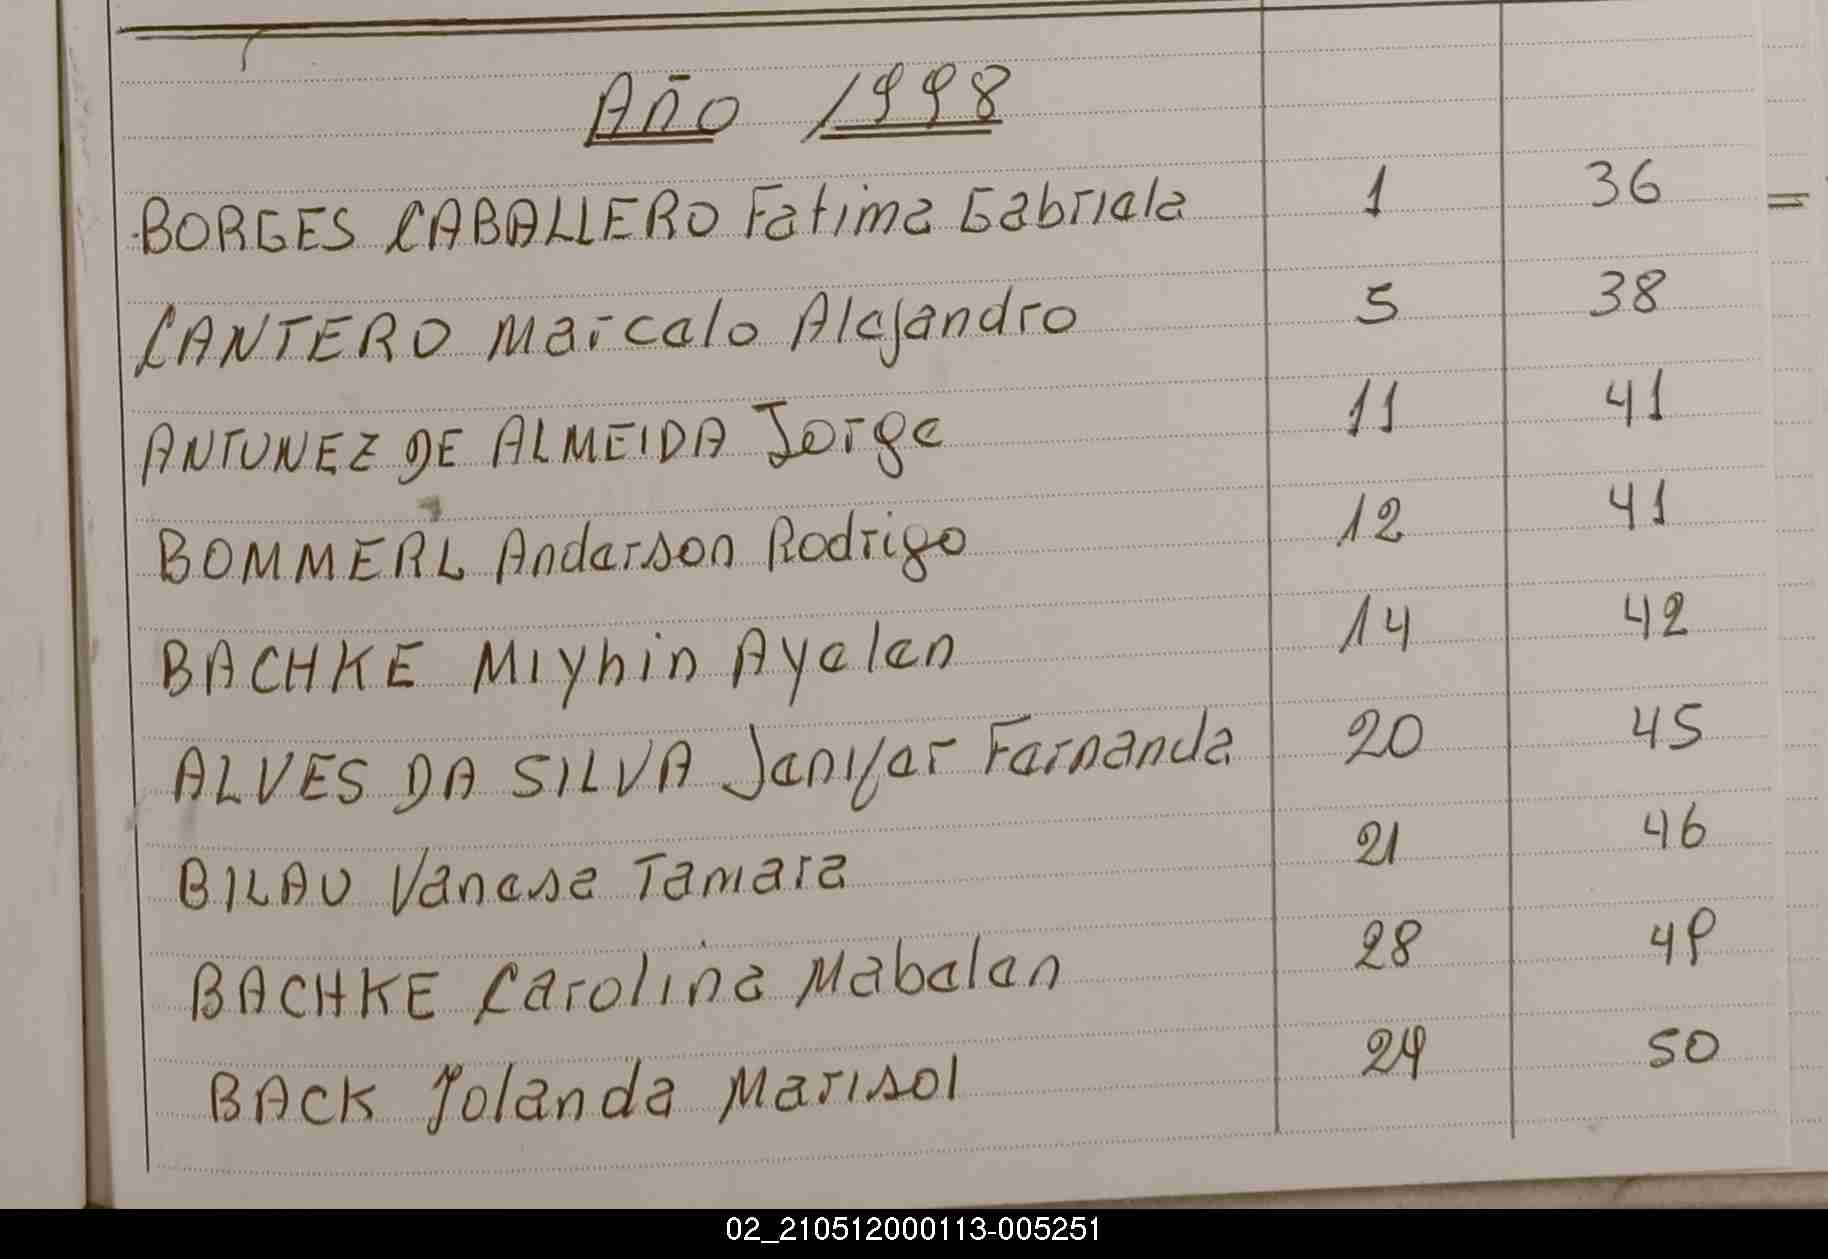 Año 1998
BORGES CABALLERO Fatima Gabriela 1 36 =
CANTERO Marcelo Alejandro 5 38
ANTUNEZ DE ALMEIDA Jorge 11 41
BOMMERL Anderson Rodrigo 12 41
BACHKE Miyhin Ayelen 14 42
ALVES DA SILVA Jenifer Fernanda 20 45
BILAU Vanesa Tamara 21 46
BACHKE Carolina Mabelen 28 49
BACK Yolanda Marisol 29 50
02_210512000113-005251